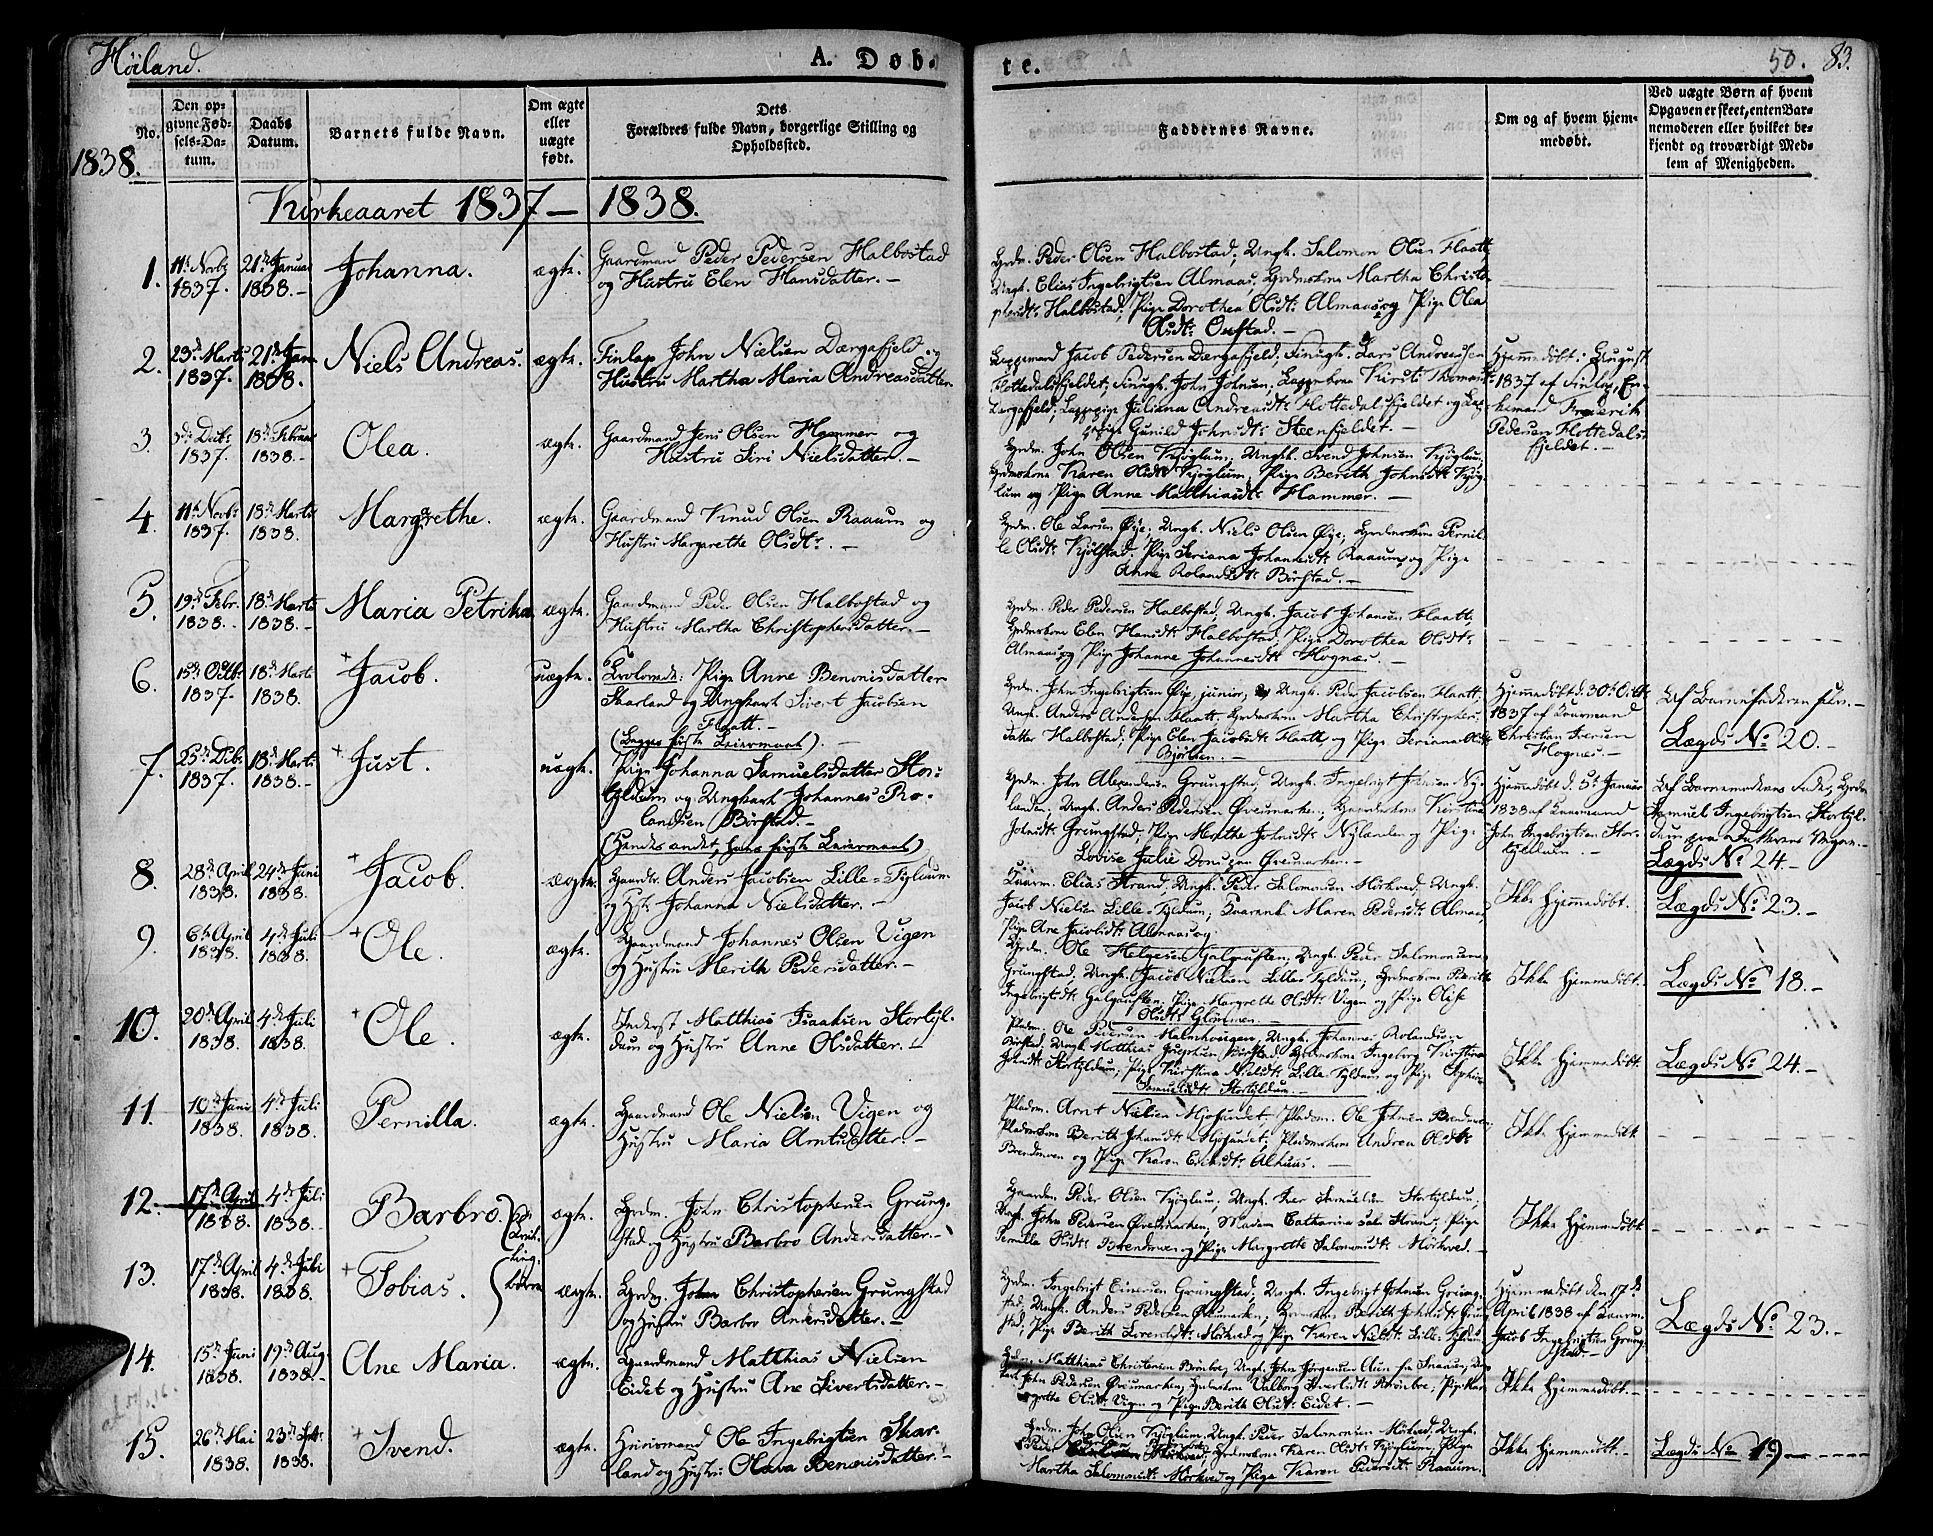 Höiland.
A. Døb-
te.
50. 83.
No.
Den op-
givne Fød-
sels-Da-
tum.
Daabs
Datum.
Barnets fulde Navn.
Om ægte
eller
uægte
født.
Dets
Forældres fulde Navn, borgerlige Stilling og
Opholdssted.
Faddernes Navne.
Om og af hvem hjem-
medøbt.
Ved uægte Børn af hvem
Opgaven er skeet, enten Bar-
nemoderen eller hvilket be-
kjendt og troværdigt Med-
lem af Menigheden.
1838.
Kirkeaaret 1837 — 1838.
1.
11te Novbr
1837.
21de Januar
1838.
Johanna.
ægte.
Gaardmand Peder Pedersen Halbostad
og Hustru Elen Hansdatter.
Grdm. Peder Olsen Halbostad; Ungk. Salomon Olsen Flaatt,
Ungk. Elias Ingebrigtsen Almaas, Grdmskone Martha Christo-
phersdtr Halbostad; Pige Dorothea Olsdtr Almaas og Pige Olea
Olsdtr
2.
23de Marts
1837.
21de Jan.
1838.
Niels Andreas.
ægte.
Finlap John Nielsen Dærgafjeld og
Hustru Martha Maria Andreasdatter.
Lappmand Jacob Pedersen Dærgafjeld; Lars Andreassen
Flottedalsfjeldet; John Johnsen; Kirsti Thomasdtr
Dærgafjeld; Juliana Andreasdtr Flottedalsfjeldet og Lap-
pepige Gunild Johnsdtr Steenfjeldet.
Hjemmedøbt i August
1837 af Finlap,
Frederik
Pedersen Flottedals-
fjeldet.
3.
3de Decbr
1837.
18de Februar
1838.
Olea.
ægte.
Gaardmand Jens Olsen Hammer og
Hustru Siri Nielsdatter.
Grdm. John Olsen Kjøglum, Ungk. Svend Johnsen Kjøglum,
Grdmskone Karen Olsdtr Kjøglum, Pige Berith Johnsdtr Kjøg-
lum og Pige Anne Matthiasdtr Hammer.
4.
11te Novbr
1837.
18de Marts
1838.
Margrethe.
ægte.
Gaardmand Knud Olsen Raaum og
Hustru Margarethe Olsdtr.
Grdm. Ole Larsen Øye, Ungk. Niels Olsen Øye, Grdmskone Pernil-
le Olsdtr Kjølstad, Pige Seriana Johannesdtr Raaum og Pige
Anne Rolandsdtr Børstad.
5.
19de Febr.
1838.
18de Marts
1838.
Maria Petrika
ægte.
Gaardmand Peder Olsen Halbostad og
Hustru Martha Christophersdatter.
Grdm. Peder Pedersen Halbostad, Ungk. Jacob Johansen Flaatt,
Grdmskone Elen Hansdtr Halbostad, Pige Dorothea Olsdtr
Almaas og Pige Johanne Johannesdtr Hognæs.
6.
15de Octbr.
1837.
18de Marts
1838.
+ Jacob.
uægte.
Pige Anne Benonisdatter
Skarland og Ungkarl Sivert Jacobsen
Flaatt.
(Begges første Leiermaal).
Grdm. John Ingebrigtsen Øye, junior, Ungk. Peder Jacobsen Flaatt,
Ungk. Anders Andersen Flaatt, Grdmskone Martha Christophers-
datter Halbostad, Pige Elen Jacobsdtr Flaatt, og Pige Seriana Olsdtr
Hjemmedøbt d. 30te Octbr
1837 af Gaarmand
Christian Iversen
Hognes.
Af Barnefaderen selv.
Lægds No. 20.
7.
25de Dcbr.
1837.
18de Marts
1838.
+ Just.
uægte.
Pige Johanna Samuelsdatter Stor-
tyldum og Ungkarl Johannes Ro-
landsen Børstad.
(Hendes andet, hans første Leiermaal)
Grdm. John Alexandersen Grungstad, Ungk. Ingebrigt Johnsen Ny-
landen, Ungk. Anders Pedersen Øveimarken, Kirstina
Johnsdtr Grungstad, Pige Marthe Johnsdtr Nylanden og Pige
Lovise Julie Dons paa Øveimarken.
Hjemmedøbt d. 5te Januar
1838 af Gaarmand
John Ingebrigtsen Stor-
tyldum.
Af Barnemoderens Fader, Grdm.
Samuel Ingebrigtsen Stortyl-
dum paa Datterens Vegne.
Lægds No. 24.
8.
28de April
1838.
24de Juni
1838.
+ Jacob.
ægte.
Gaardm. Anders Jacobsen Lille-Tyldum
og Hstr Johanna Nielsdatter.
Elias Strand, Ungk. Peder Salomonsen Mørkved, Ungk.
Jacob Nielsen Lille-Tyldum, Maren Pedersdtr Almaas,
Pige Ane Jacobsdtr Almaas og
Ikke hjemmedøbt.
Lægds No. 23.
9.
6te April
1838.
4de Juli
1838.
+ Ole.
ægte.
Gaardmand Johannes Olsen Vigen
og Hustru Merith Pedersdatter.
Grdm. Ole Helgesen Galguften, Ungk. Peder Salomonsen
Grungstad, Ungk. Jacob Nielsen Lille Tyldum, Grdmskone Berith
Ingebrigtsdtr Galguften, Pige Margrethe Olsdtr Vigen og Pige Olise
Olsdtr Glømmen.
Ikke hjemmedøbt.
Lægds No. 18.
10.
20de April
1838.
4de Juli
1838.
+ Ole.
ægte.
Inderst Matthias Isaaksen Stortyl-
dum og Hustru Anne Olsdatter.
Pladsm. Ole Pedersen Malmhougen, Ungk. Johannes Rolandsen
Børstad, Ungk. Matthias Josephsen Børstad, Grdmskone Ingeborg Kirstina
Johnsdtr Stortyldum, Pige Kirstina Nielsdtr Lille Tyldum og Pige
Samuelsdtr Stortyldum.
Ikke hjemmedøbt
Lægds No. 24.
11.
10de Juni
1838.
4de Juli
1838.
Pernilla.
ægte.
Gaardmand Ole Nielsen Vigen og
Hustru Maria Arntsdatter.
Pladsm. Arnt Nielsen Mjosundet, Pladsm. Ole Johnsen Brendmoen,
Pladsmkone Berith Johansdtr Mjosundet, Pladsmkone Andrea Olsdtr
Brendmoen og Pige Karen Eriksdtr Alhuus.
Ikke hjemmedøbt
12.
17de April
1838.
4de Juli
1838.
Barbro.
ægte.
Grdm. John Christophersen Grung-
stad og Hustru Barbro Andersdatter.
Gaardm. Peder Olsen Kjøglum, Ungk. Iver Samuelsen Stortyldum,
Ungk. John Pedersen Øveimarken, Madam Catharina sal. Strand, Pige
Pernille Olsdtr Brendmoen og Pige Margrethe Salomonsdtr Mørkved.
Ikke hjemmedøbt
13.
17de April
1838.
4de Juli
1838.
+ Tobias.
Tvil-
ling-
børn
ægte.
Grdm. John Christophersen Grungstad
og Hustru Barbro Andersdatter.
Grdm. Ingebrigt Einersen Grungstad, Ungk. Ingebrigt Johnsen Grung-
stad, Ungk. Anders Pedersen Øveimarken, Berith Johnsdtr Grung-
stad, Pige Berith Lorentsdtr Mørkved og Pige Karen Nielsdtr Lille Tyldum
Hjemmedøbt den 17de
April 1838 af Gaarm.
Jacob Ingebrigtsen Grung-
stad.
Lægds No. 23.
14.
15de Juni
1838.
19de Aug
1838.
Ane Maria.
ægte.
Gaardmand Matthias Nielsen
Eidet og Hustru Ane Sivertsdatter.
Grdm. Matthias Christensen Brønbo, Ungk. John Jørgensen Aun fra Snaasen, Ung-
karl John Pedersen Øveimarken, Valborg Brønbo, Pige Mar-
grethe Olsdtr Vigen og Pige Berith Olsdtr Eidet.
Ikke hjemmedøbt
15.
26de Mai
1838.
23de Spt.
1838.
+ Svend.
ægte.
Huusmand Ole Ingebrigtsen Skar-
land og Hustru Olava Benonisdatter.
Grdm. John Olsen Kjøglum, Ungk. Peder Salomonsen Mørkved, Ungk.
Peder Mørkved, Grdmskone Karen Olsdtr Kjøglum, Pige
Martha Salomonsdtr Mørkved og Pige Karen Pedersdtr Raaum.
Ikke hjemmedøbt.
Lægds No 19